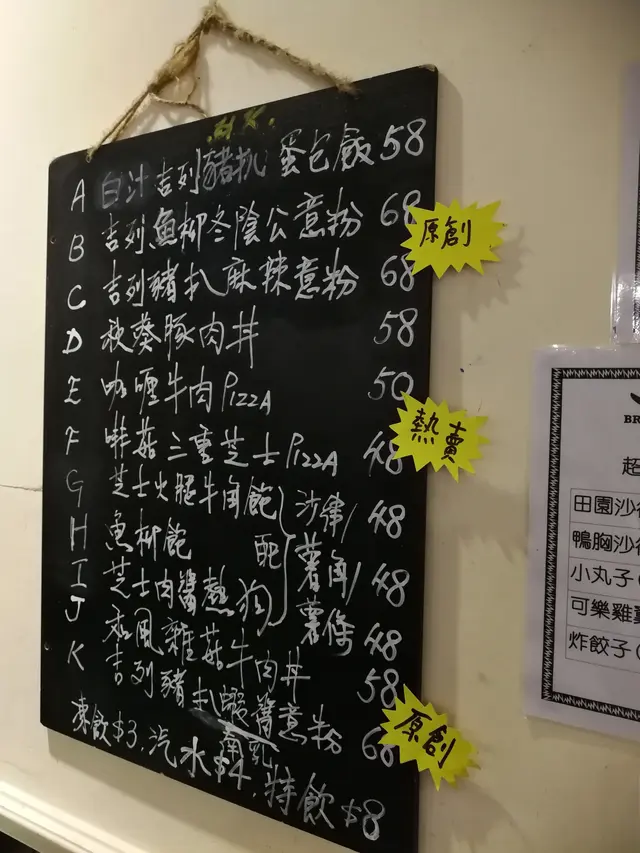 A 白汁吉列豬扒蛋包飯 58
B 吉列魚柳冬陰公意粉 68 原創
C 吉列豬扒麻辣意粉 68
D 秋葵豚肉丼 58
E 咖喱牛肉PIZZA 50
F 啡菇三重芝士PIZZA 48 熱賣
G 芝士火腿牛角飽 48
H 魚柳飽 48
I 芝士肉醬熱狗 48
配 沙律/
薯角/
薯條
J 和風雜菇牛肉丼 58
K 吉列豬扒蝦醬意粉 原創
南乳
凍飲$3.汽水$4.特飲$8
BR
超
田園沙
鴨胸沙
小丸子(
可樂雞
炸餃子(